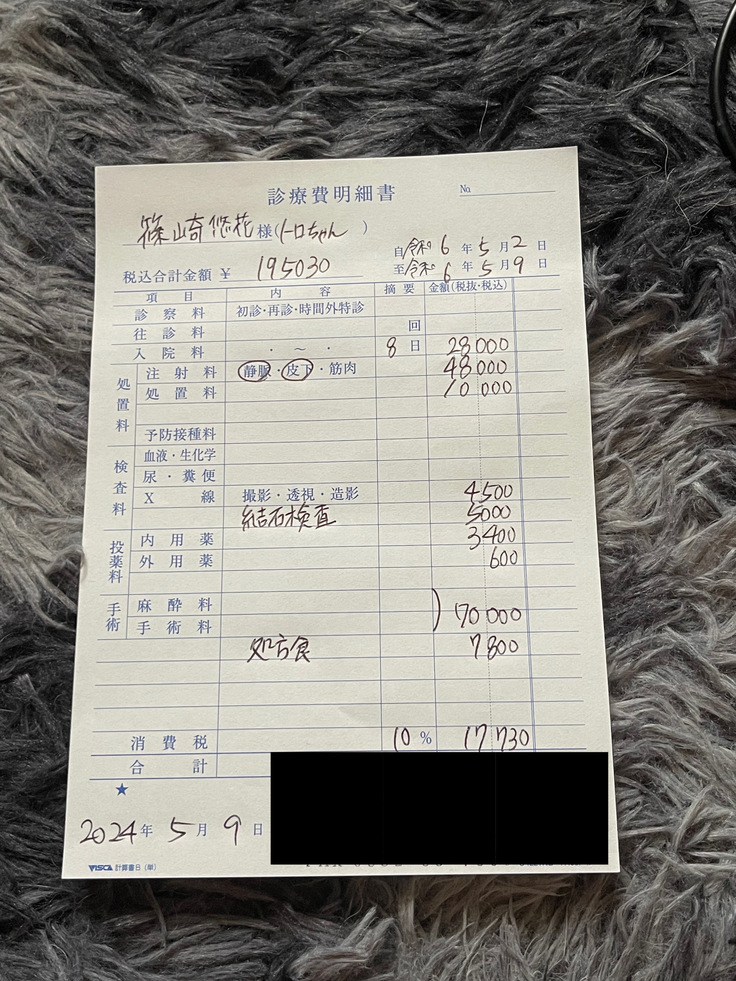 診療費明細書 No.
篠崎悠花様(トロちゃん)
自令和6年5月2日
税込合計金額 ¥ 195030 至令和6年5月9日
項目 内容 摘要 金額(税抜・税込)
診察料 初診・再診・時間外特診
往診料 回
入院料 ・ ～ ・ 8日 28000
処置料 注射料 静脈・皮下・筋肉 48000
処置料 10000
予防接種料
検査料 血液・生化学
尿・糞便
X線 撮影・透視・造影 4500
結石検査 5000
投薬料 内用薬 3400
外用薬 600
手術 麻酔料
手術料 ) 70000
処方食 7800
消費税 10% 17730
合計
★
2024年5月9日
VISCA 計算書B(単)